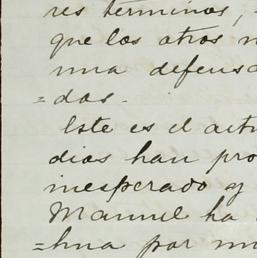 res terminos,
que los otros
una defensa
=das.
Este es el
dias han pro
inesperado y
Manuel ha
=hua por